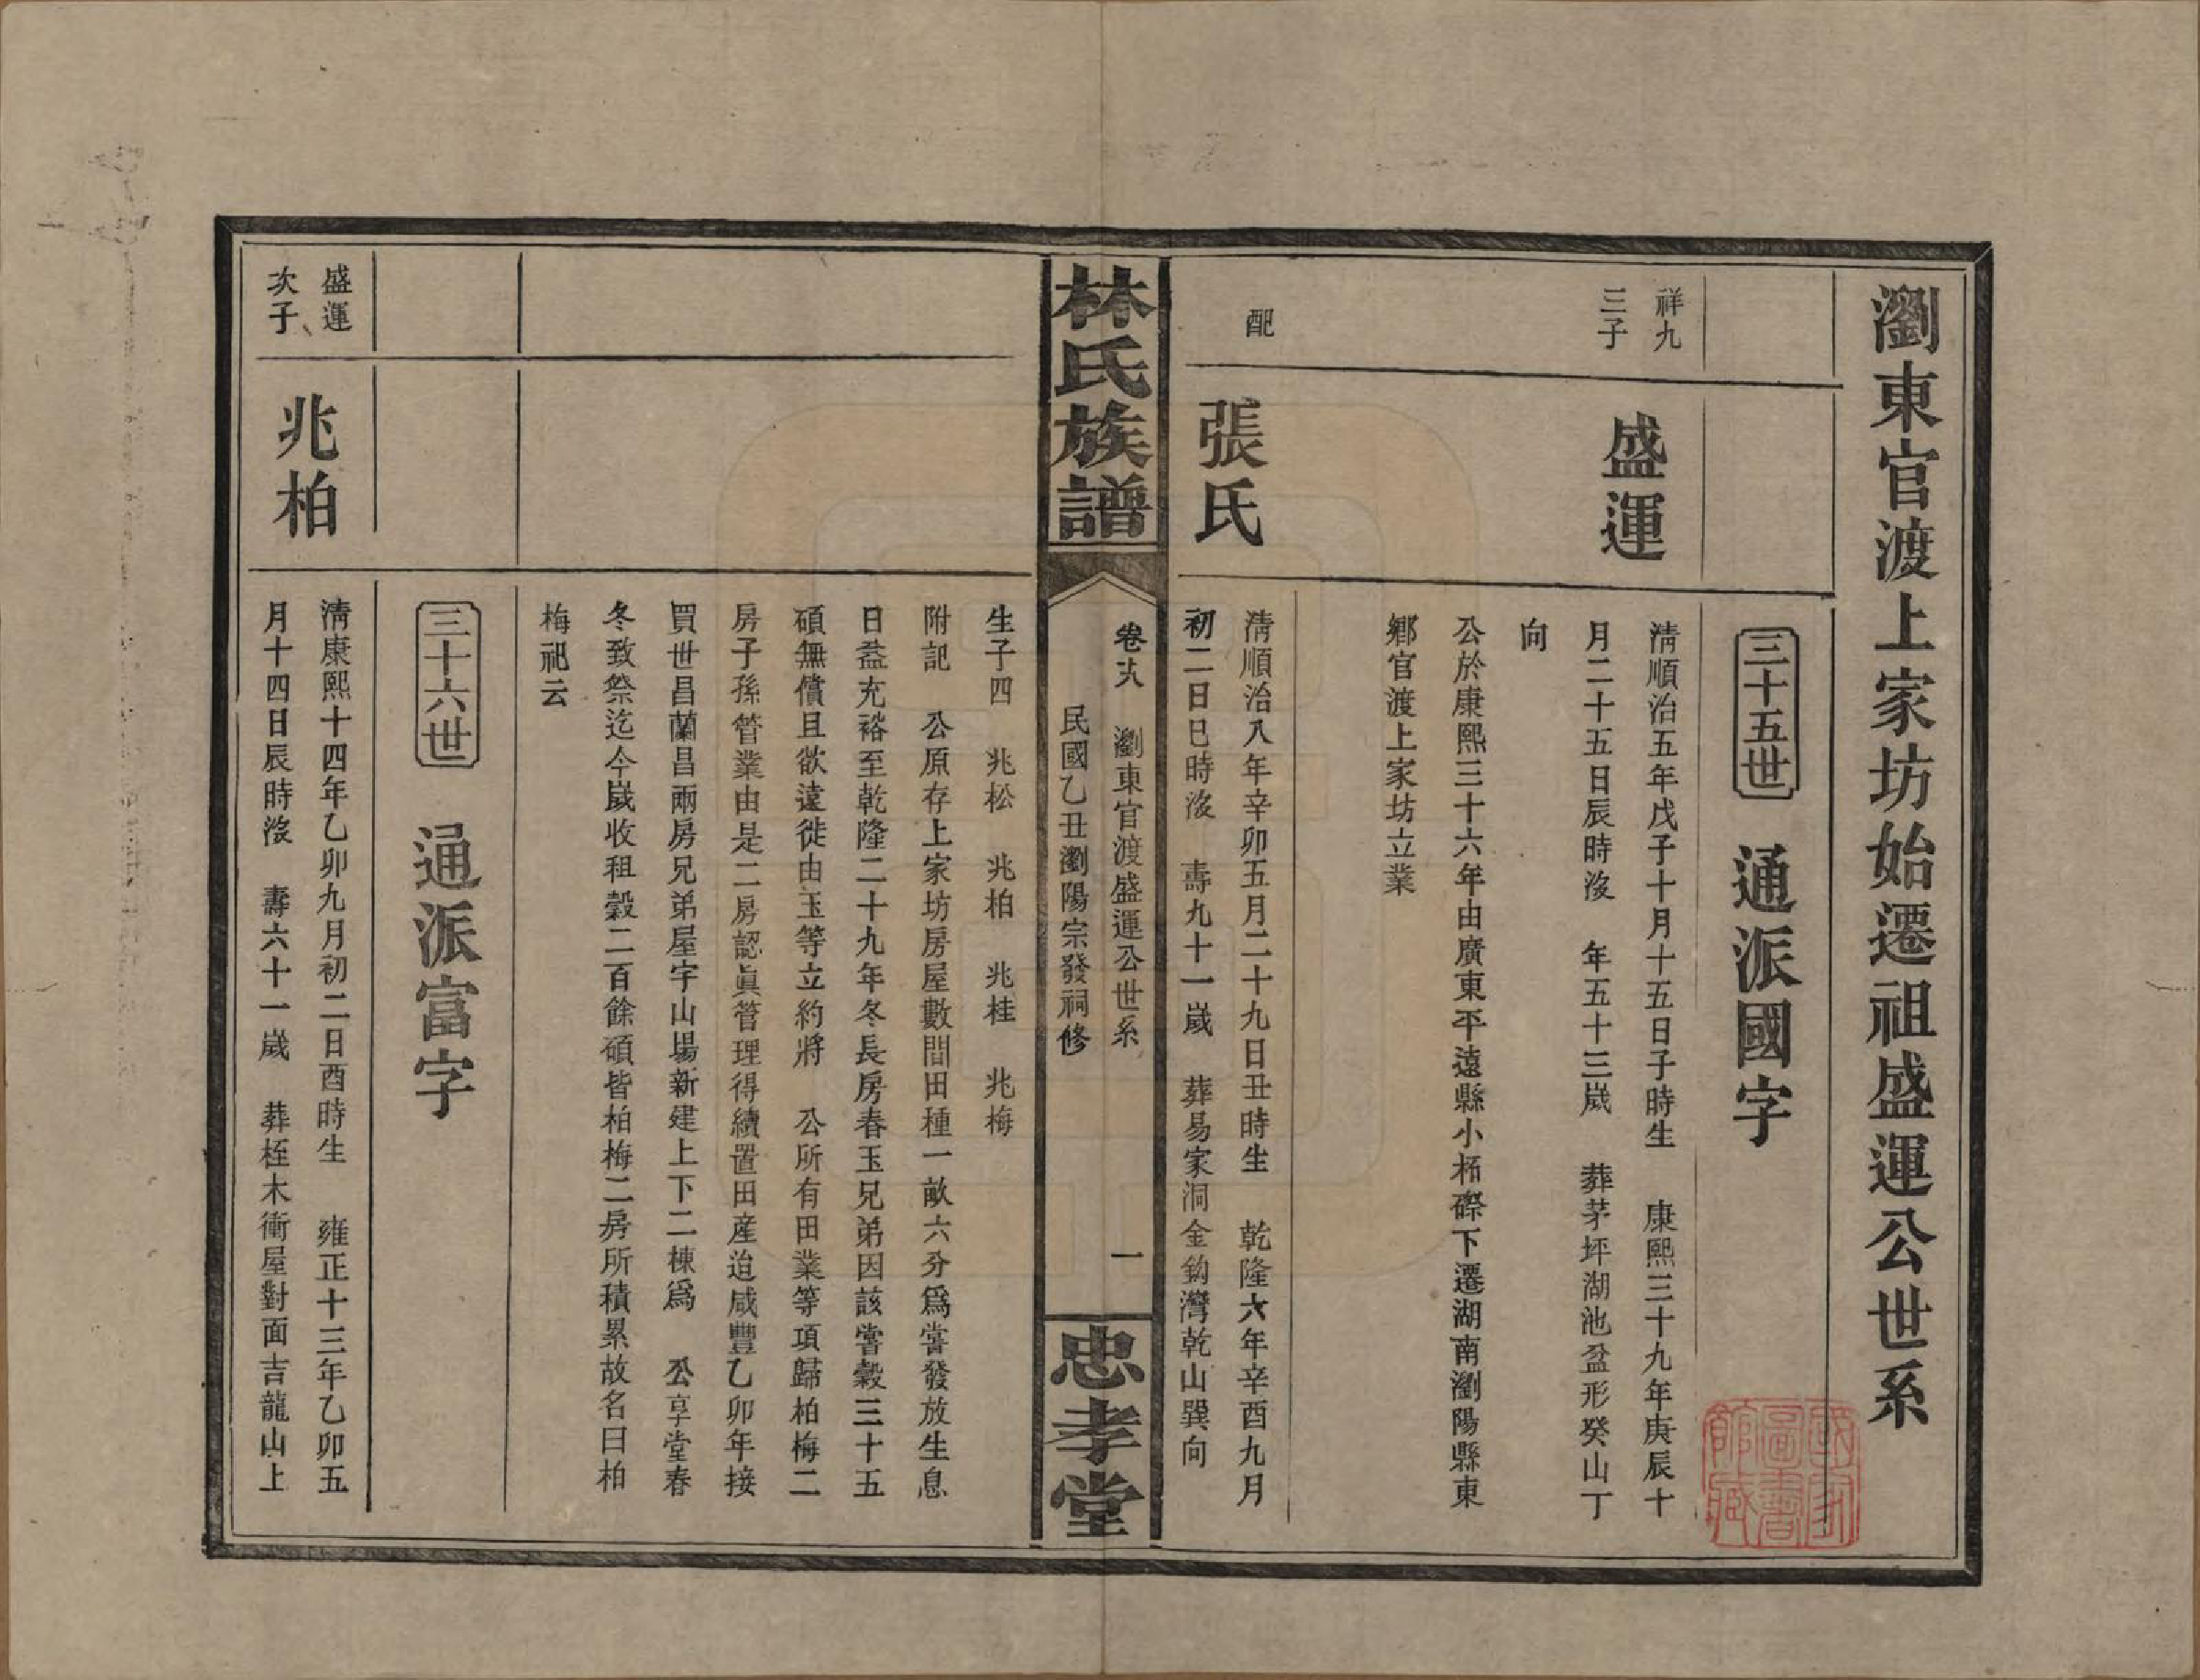 瀏東官渡上家坊始遷祖盛運公世系
三十五世　通派國字
祥九
三子
盛運
清順治五年戊子十月十五日子時生　康熙三十九年庚辰十
月二十五日辰時沒　年五十三歲　葬茅坪湖池盆形癸山丁
向
公於康熙三十六年由廣東平遠縣小柘磜下遷湖南瀏陽縣東
鄉官渡上家坊立業
配
張氏
清順治八年辛卯五月二十九日丑時生　乾隆六年辛酉九月
初二日巳時沒　壽九十一歲　葬易家洞金鈎灣乾山巽向
林氏族譜
卷十九　瀏東官渡盛運公世系　一
民國乙丑瀏陽宗發祠修
忠孝堂
生子四　兆松　兆柏　兆桂　兆梅
附記　公原存上家坊房屋數間田種一畝六分爲嘗發放生息
日益充裕至乾隆二十九年冬長房春玉兄弟因該嘗穀三十五
碩無償且欲遠徙由玉等立約將　公所有田業等項歸柏梅二
房子孫管業由是二房認眞管理得續置田產迨咸豐乙卯年接
買世昌蘭昌兩房兄弟屋宇山場新建上下二棟爲　公享堂春
冬致祭迄今歲收租穀二百餘碩皆柏梅二房所積累故名曰柏
梅祀云
三十六世　通派富字
盛運
次子
兆柏
清康熙十四年乙卯九月初二日酉時生　雍正十三年乙卯五
月十四日辰時沒　壽六十一歲　葬桎木衝屋對面吉龍山上
國家圖書館藏